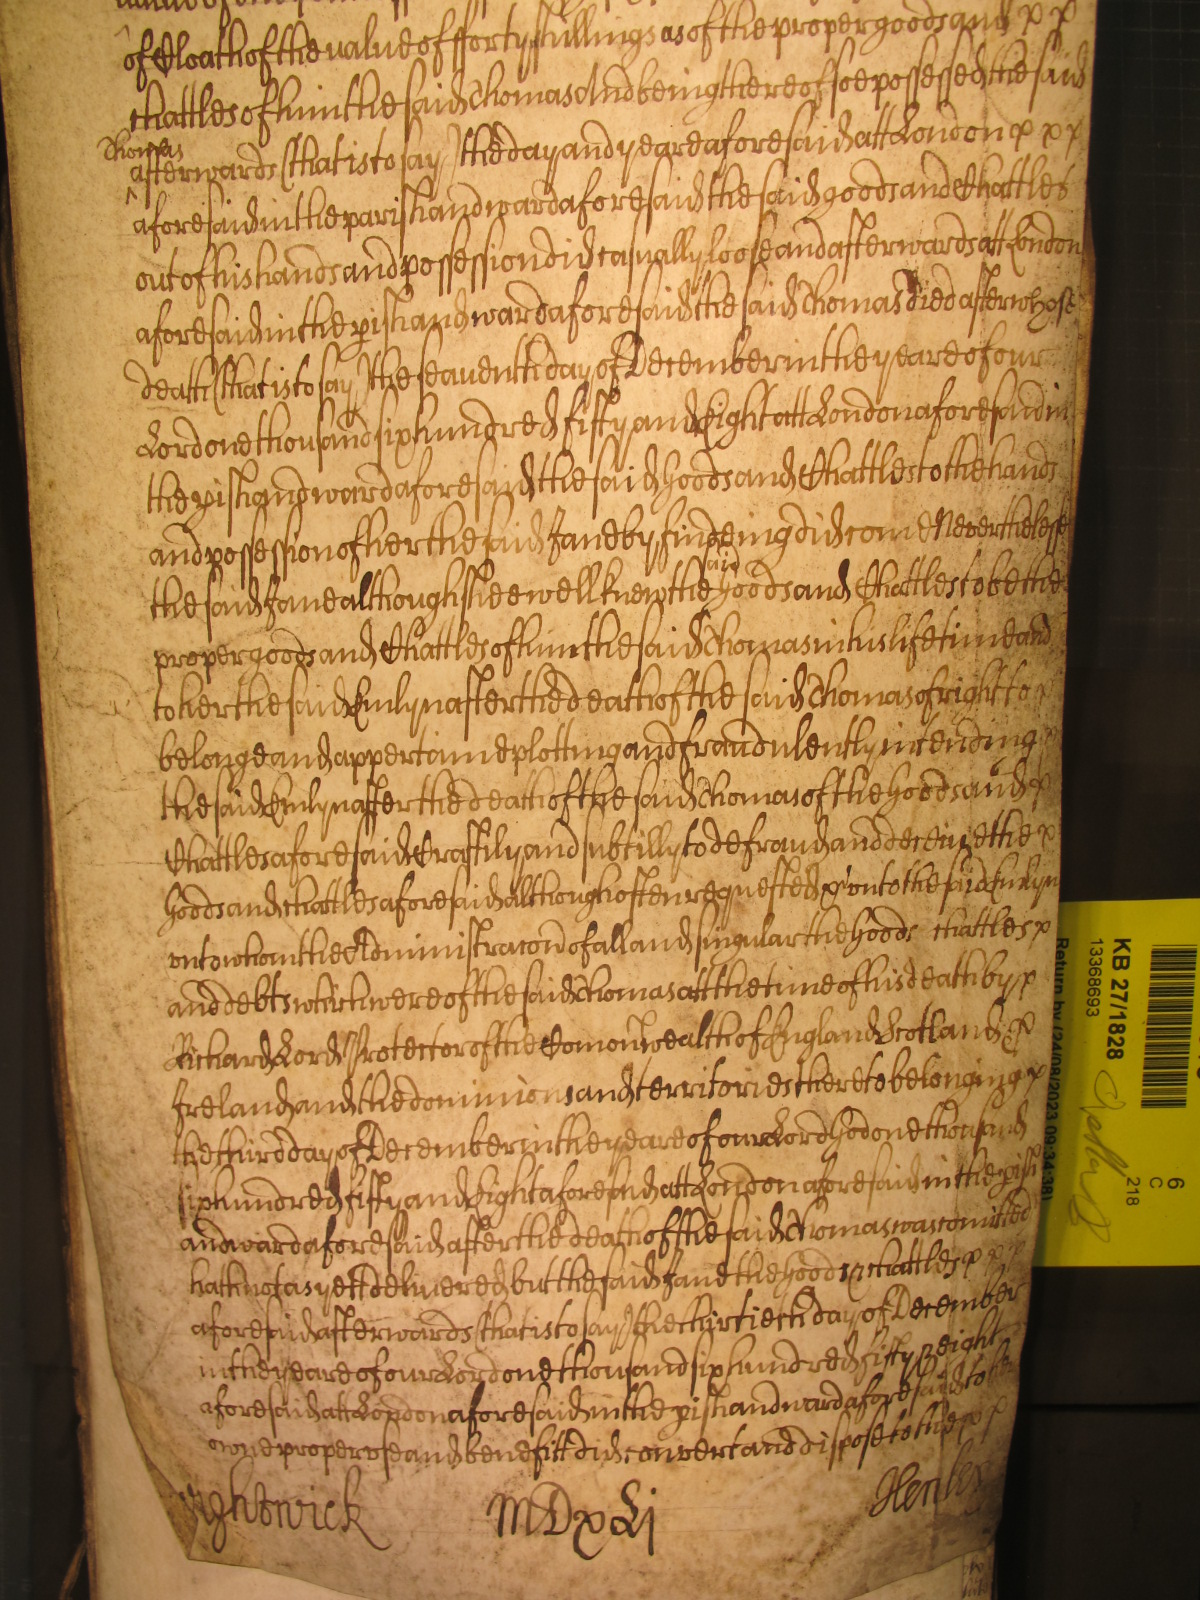 of Cloath of the value of fforty shillings as of the proper goods and x x
chattles of him the said Thomas And being thereof soe possessed the said
Thomas
afterwards (that is to say) the day and yeare aforesaid att London x x x
aforesaid in the parish and ward aforesaid the said goods and Chattles
out of his hands and possession did casually loose and afterwards att London
aforesaid in the pish and ward aforesaid the said Thomas died after whose
death (that is to say) the seaventh day of December in the yeare of our
Lord one thousand six hundred fifty and Eight att London aforesaid in
the pish and ward aforesaid the said Goods and Chattles to the hands
and possession of her the said Jane by findeing did come Neverthelesse
the said Jane although shee well knew the said Goods and Chattles to be the
proper goods and Chattles of him the said Thomas in his life time and
to her the said Emlyn after the death of the said Thomas of right to x
belonge and appertaine plotting and fraudulently intending x
the said Emlyn after the death of the said Thomas of the Goods and x
Chattles aforesaid Craftily and subtilly to defraud and deceive the x
Goods and chattles aforesaid although often requested &c unto the said Emlyn
unto whom the Administracon of all and singular the Goods chattles x
and debts which were of the said Thomas att the time of his death by x
Richard Lord Protector of the Comonwealth of England Scotland &
Ireland and the dominions and territories thereto belonging x
the third day of December in the yeare of our Lord God one thousand
six hundred fifty and Eight aforesaid att London aforesaid in the pish
and ward aforesaid after the death of the said Thomas was comitted
hath not as yett delivered but the said Jane the Goods & chattles x x x
aforesaid afterwards (that is to say) the thirtieth day of December
in the yeare of our Lord one thousand six hundred fifty & eight
aforesaid att London aforesaid in the pish and ward aforesaid to
owne proper use and benefitt did convert and dispose to the x x
Wightwick MDxLj Henley
KB 27/1828
13368693
Return by (24/08/2023 09:34:38)
6
C
218